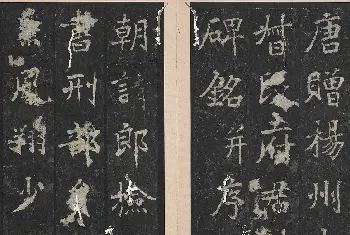 唐贈楊州
督段府君
碑銘并序
朝請郎撿
書刑部員
兼鳳翔少